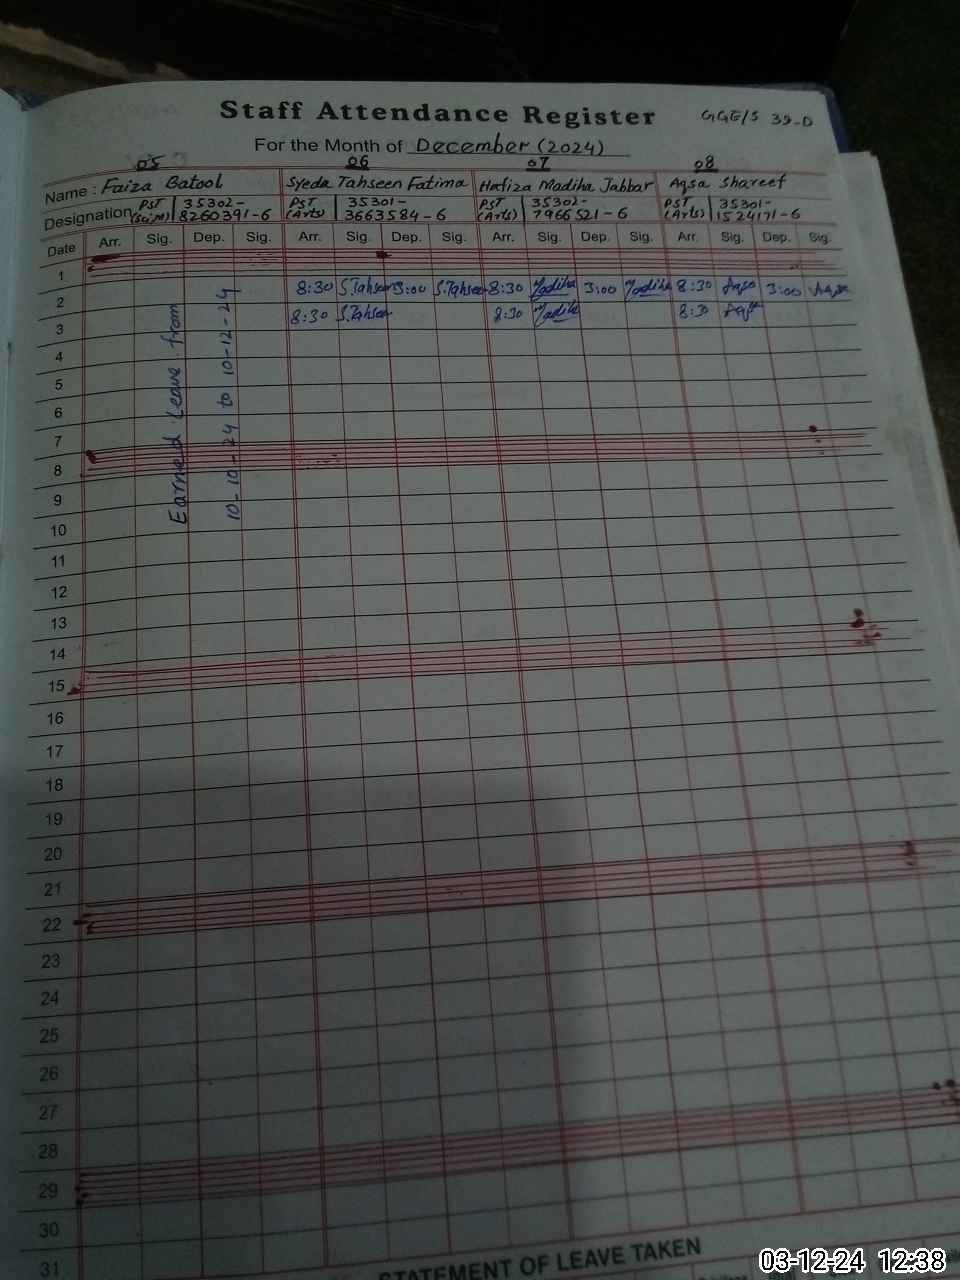 Staff Attendance Register
GGE/S 39-D
For the Month of December (2024)
05 06 07 08
Name : Faiza Batool Syeda Tahseen Fatima Hafiza Madiha Jabbar Aqsa Shareef
Designation PST (Sci/M) 35302-8260391-6 PST (Arts) 35301-3663584-6 PST (Arts) 35302-7966521-6 PST (Arts) 35301-1524171-6
Date Arr. Sig. Dep. Sig. Arr. Sig. Dep. Sig. Arr. Sig. Dep. Sig. Arr. Sig. Dep. Sig.
1
2 8:30 S.Tahseen 3:00 S.Tahseen 8:30 Madiha 3:00 Madiha 8:30 Aqsa 3:00 Aqsa
3 8:30 S.Tahseen 8:30 Madiha 8:30 Aqsa
Earned Leave from
10-10-24 to 10-12-24
4
5
6
7
8
9
10
11
12
13
14
15
16
17
18
19
20
21
22
23
24
25
26
27
28
29
30
31
STATEMENT OF LEAVE TAKEN
03-12-24 12:38